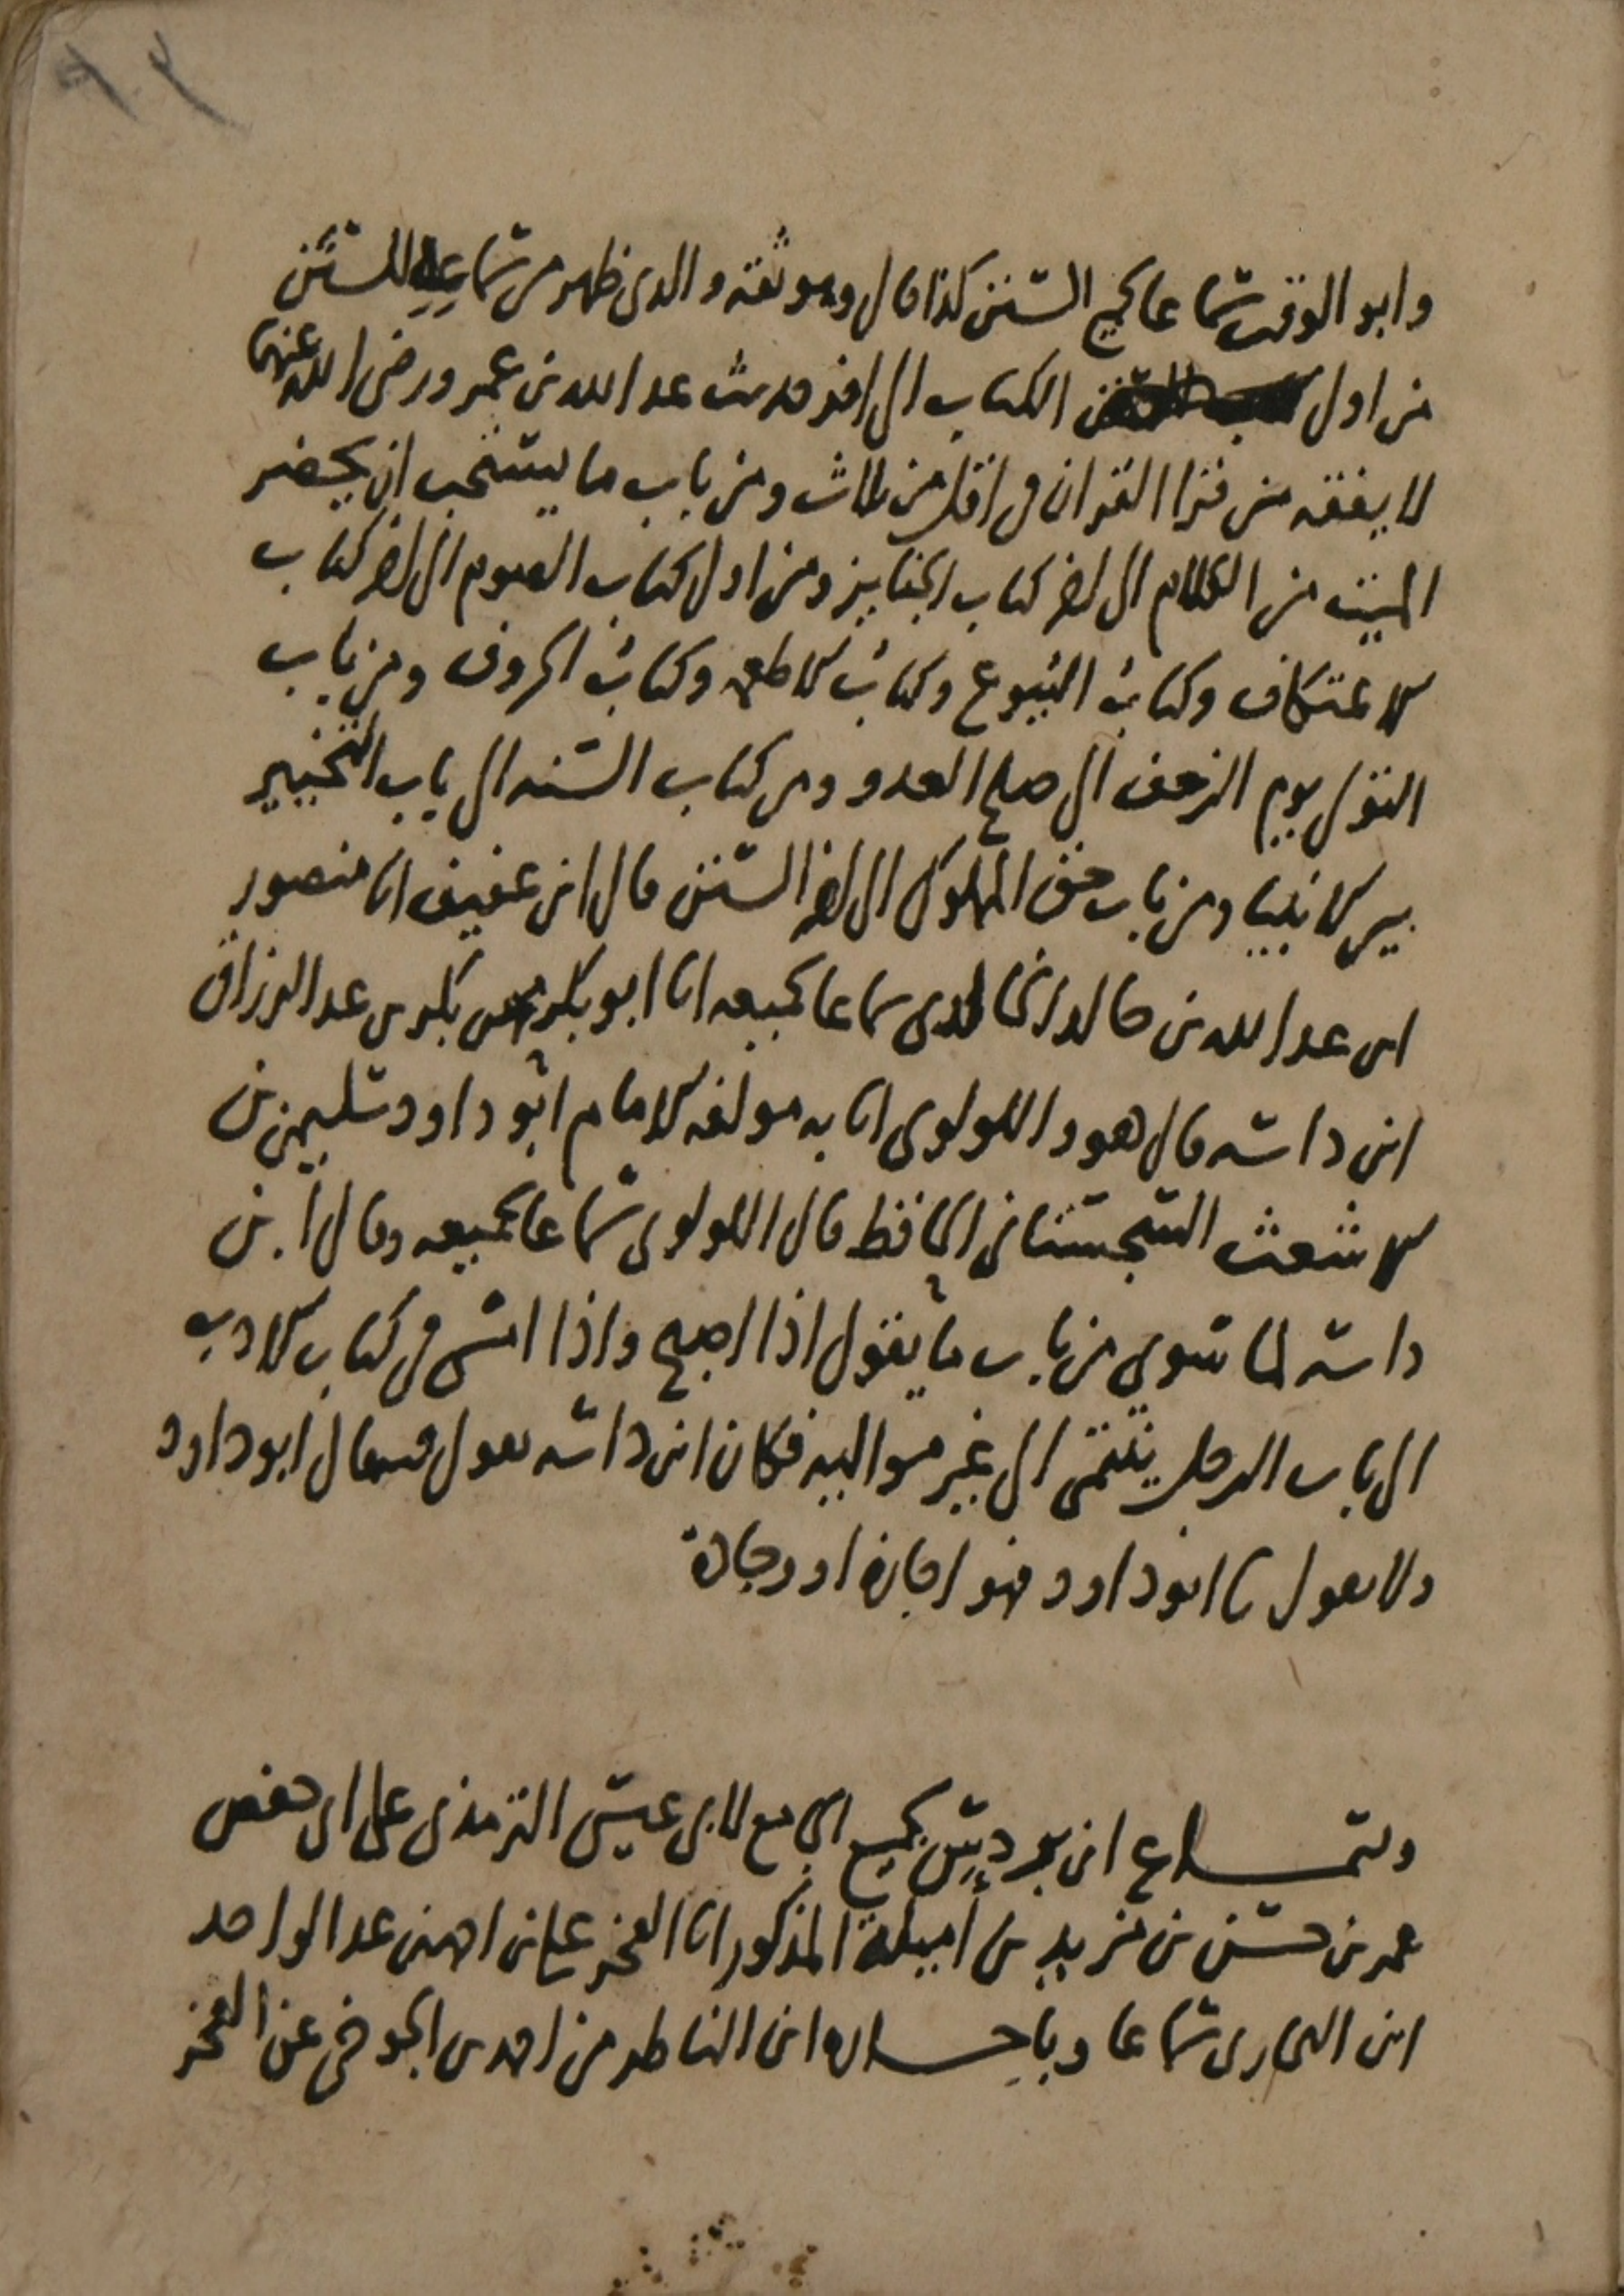 وابو الوقت سماعا لجميع السنن كذا قال وهو ثقة والذي ظهر من سماعه للسنن
من اول الكتاب الى اخر حديث عبد الله بن عمرو رضي الله عنهما
لا يفقه من قرا القران في اقل من ثلاث ومن باب ما يستحب ان يحضر
الميت من الكلام الى اخر كتاب الجنايز ومن اول كتاب الصوم الى اخر كتاب
الاعتكاف وكتاب البيوع وكتاب الاطعمه وكتاب الحروف ومن باب
التولي يوم الزحف الى صلح العدو ومن كتاب السنه الى باب التخيير
بين الانبيا ومن باب حق المملوك الى اخر السنن قال ابن عفيف انا منصور
ابن عبد الله بن خالد الخالدي سماعا لجميعه انا ابو بكر محمد بن بكر بن عبد الرزاق
ابن داسه قال هو واللولوي انا به مولفه الامام ابو داود سليمن بن
الاشعث السجستاني الحافظ قال اللولوي سماعا لجميعه وقال ابن
داسه لما سوى من باب ما يقول اذا اصبح واذا امسى في كتاب الادب
الى باب الرجل ينتمي الى غير مواليه فكان ابن داسه يقول قال ابو داود
ولا يقول نا ابو داود فهو اجازة او وجادة
وسماع ابن بردس لجميع الجامع لابي عيسى الترمذي على ابي حفص
عمر بن حسن بن مزيد بن اميلة المذكور انا الفخر علي بن احمد بن عبد الواحد
ابن البخاري سماعا وباجازه ابن الناظر من احمد بن الجوخي عن الفخر